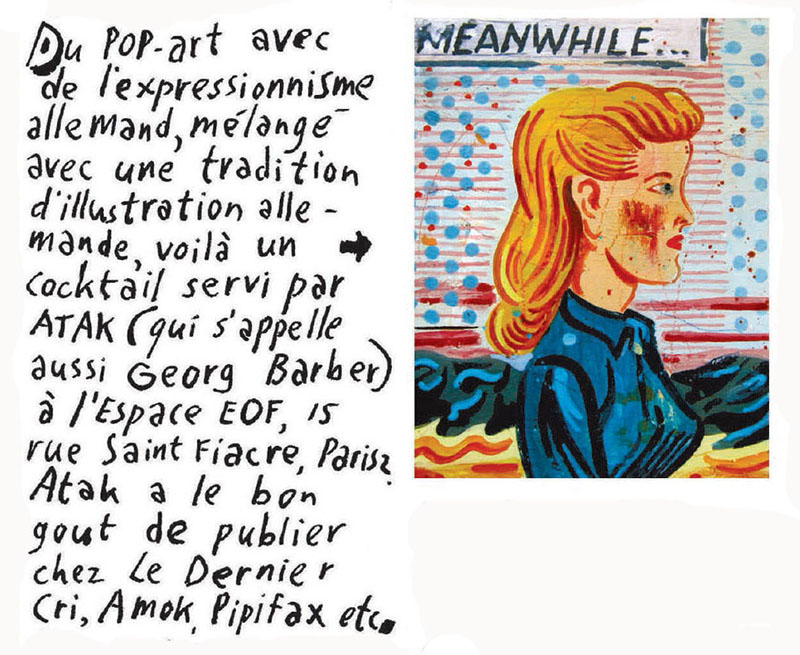 Du POP-art avec
de l'expressionnisme
allemand, mélangé
avec une tradition
d'illustration alle-
mande, voilà un ➡
cocktail servi par
ATAK (qui s'appelle
aussi Georg Barber)
à l'Espace EOF, 15
rue Saint Fiacre, Paris2.
Atak a le bon
gout de publier
chez Le Dernier
Cri, Amok, Pipifax etc.
MEANWHILE...